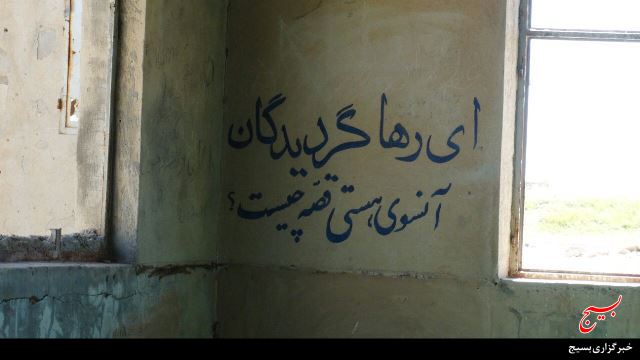 ای رها گردیدگان
آنسوی هستی قصّه چیست؟
بسیج
خبرگزاری بسیج